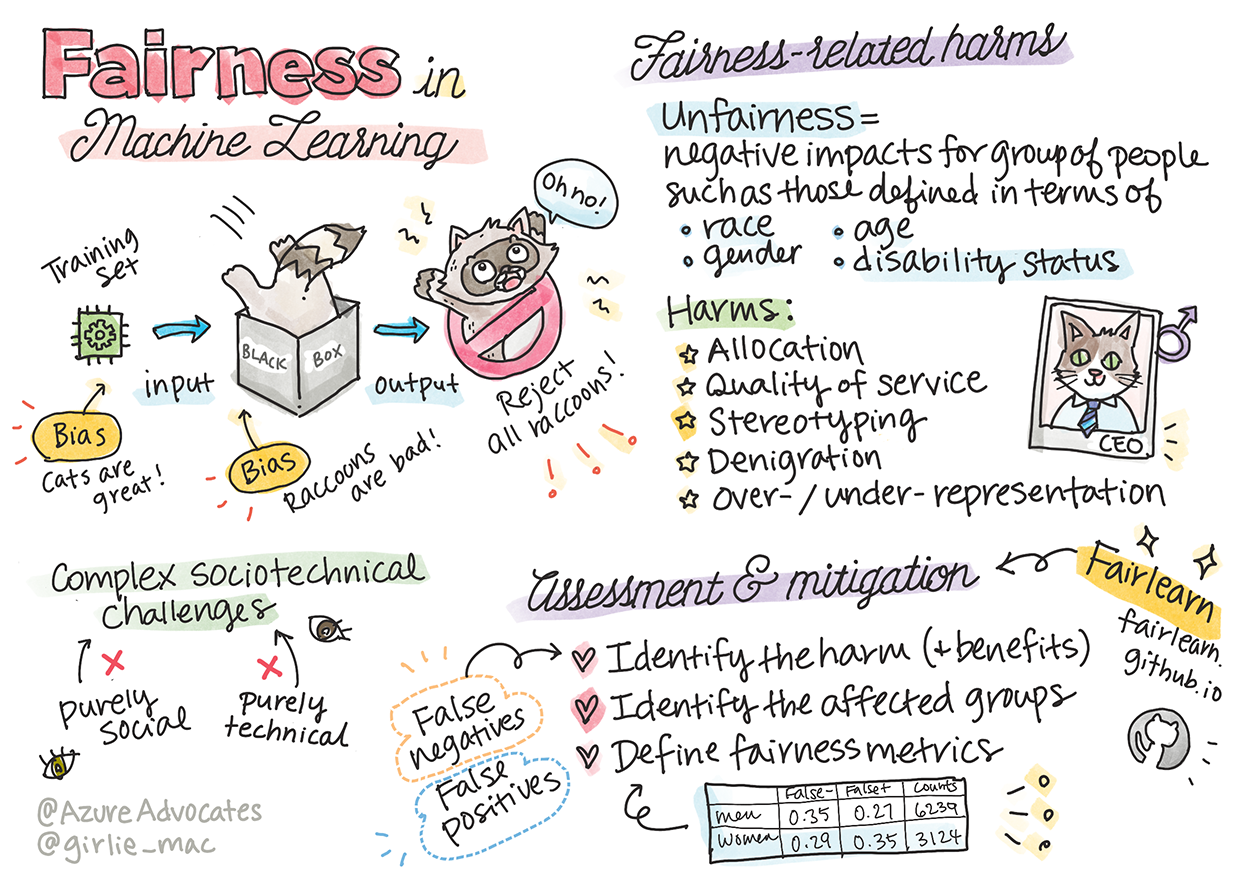 Fairness in
Machine Learning
Training
set
input
BLACK
BOX
output
Oh no!
Reject
all raccoons!
Bias
Cats are
great!
Bias
Raccoons
are bad!
Fairness-related harms
Unfairness =
negative impacts for group of people
such as those defined in terms of
• race
• age
• gender
• disability status
Harms:
Allocation
Quality of service
Stereotyping
Denigration
Over- / under- representation
CEO
Complex sociotechnical
challenges
purely
social
purely
technical
Assessment & mitigation
Identify the harm (+ benefits)
Identify the affected groups
Define fairness metrics
False
negatives
False
positives
False- False+ Counts
men 0.35 0.27 6239
Women 0.29 0.35 3124
Fairlearn
fairlearn.
github.io
@AzureAdvocates
@girlie_mac